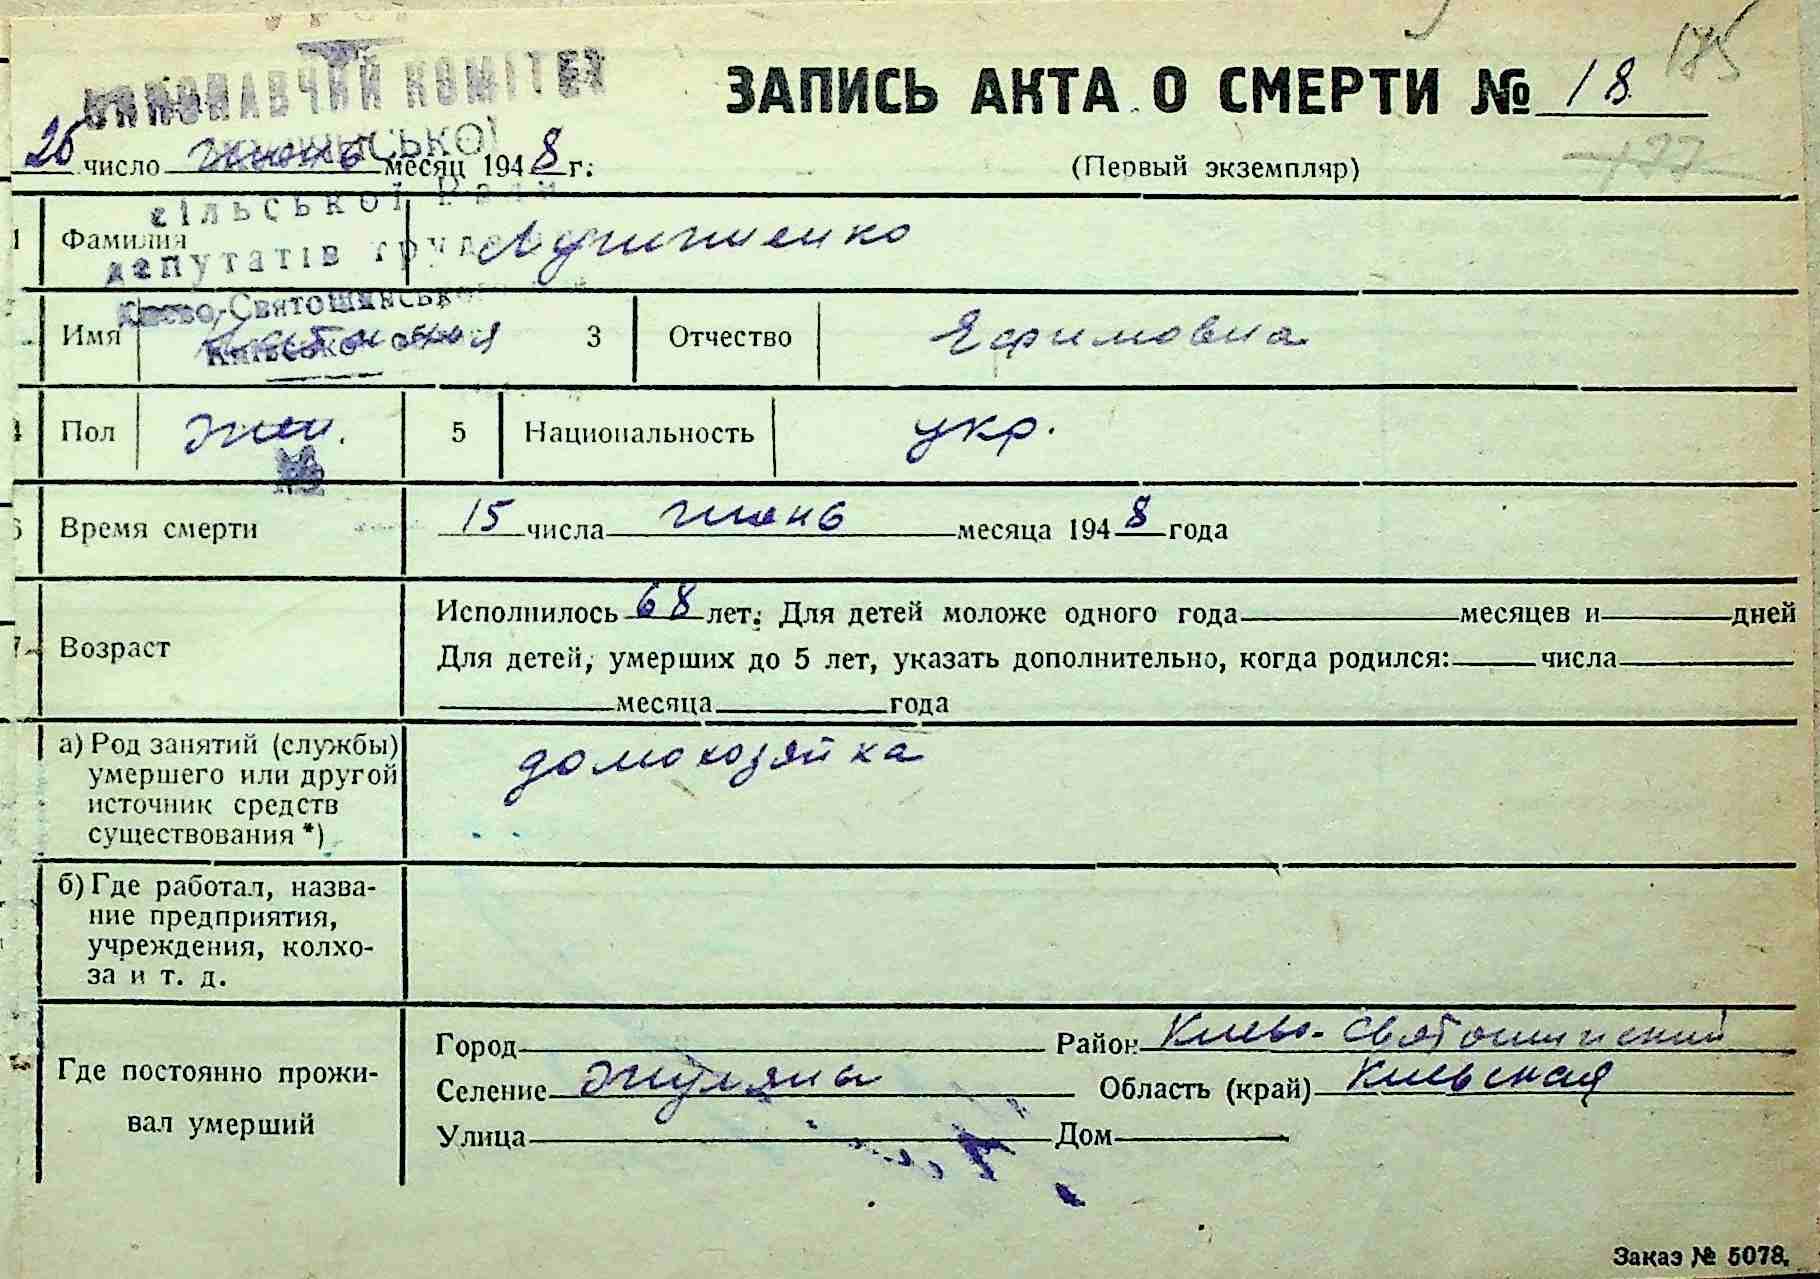 УРСР
ВИКОНАВЧИЙ КОМІТЕТ
сільської Ради
депутатів
Києво-Святошинського
Київської обл.
№
185
ЗАПИСЬ АКТА О СМЕРТИ № 18
177
26 число июнь месяц 1948 г.
(Первый экземпляр)
1 Фамилия
Имя 3 Отчество Ефимовна
4 Пол жен. 5 Национальность укр.
6 Время смерти 15 числа июнь месяца 1948 года
7 Возраст Исполнилось 68 лет. Для детей моложе одного года месяцев и дней
Для детей, умерших до 5 лет, указать дополнительно, когда родился: числа
месяца года
а) Род занятий (службы) умершего или другой источник средств существования *) домохозяйка
б) Где работал, название предприятия, учреждения, колхоза и т. д.
Где постоянно проживал умерший
Город Район Киево-Святошинский
Селение Жуляны Область (край) Киевская
Улица Дом
Заказ № 5078.